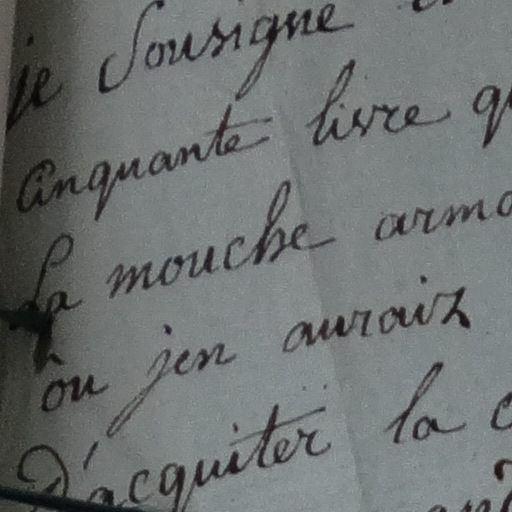 je Sousigne
Cinquante livre
La mouche
où jen aurais
D'acquiter la